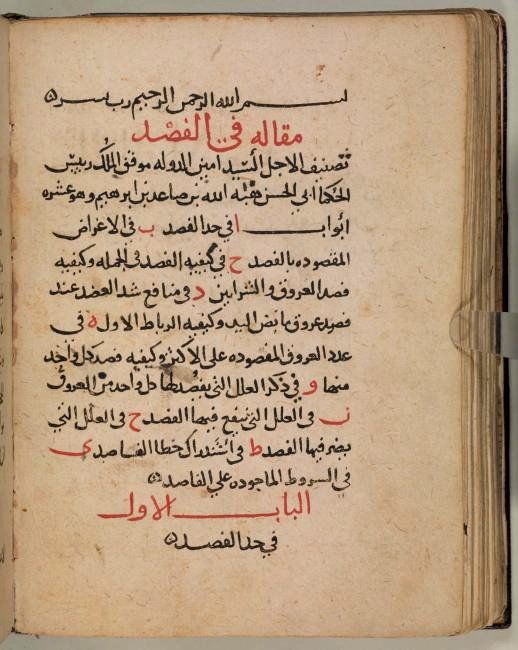 بسم الله الرحمن الرحيم رب يسر ه
مقاله في الفصد
تصنيف الاجل السيد امين الدوله موفق الملك رييس
الحكما ابي الحسن هبه الله بن صاعد بن ابرهيم وهو عشره
ابواب ا في حد الفصد ب في الاغراض
المقصوده بالفصد ج في كيفيه الفصد في الجمله وكيفيه
فصد العروق والشرايين د في منافع شد العضد عند
فصد عروق مابض اليد وكيفيه الرباط الاول ه في
عدد العروق المفصوده على الاكثر وكيفيه فصد كل واحد
منها و في ذكر العلل التي يفصد لها كل واحد من العروق
ز في العلل التي ينفع فيها الفصد ح في العلل التي
يضر فيها الفصد ط في استدراك خطا الفاصد ى
في الشروط الماخوده علي الفاصد ه
الباب الاول
في حد الفصد ه